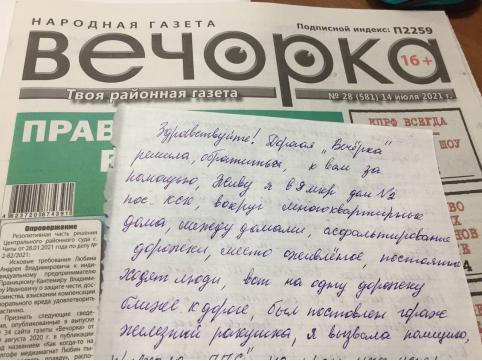 НАРОДНАЯ ГАЗЕТА
Подписной индекс: П2259
Вечорка
16+
Твоя районная газета
№ 28 (581) 14 июля 2021 г.
ПРАВ
КПРФ ВСЕГДА
ШОУ
Здравствуйте! Дорогая „Вечёрка"
решила, обратиться, к вам за
помощью, Живу я в 9 мкр дом №
пос. КСК, вокруг многоквартирные
дома, между домами, асфальтированные
дорожки, место оживлённое, постоянно
ходят люди, вот на одну дорожку
ближе к дороге, был поставлен гараж
железный ракушка, я вызвала полицию,
Опровержение
Резолютивная часть решения
Центрального районного суда г.
Читы от 28.01.2021 года по делу №
2-82/2021:
Исковые требования Любина
Андрея Владимировича к инди-
видуальному предпринимателю
Праницкому-Кантемиру Владими-
ру Ивановичу о защите чести, дос-
тоинства, взыскании компенсации
морального вреда удовлетворить
частично.
Признать следующие сведе-